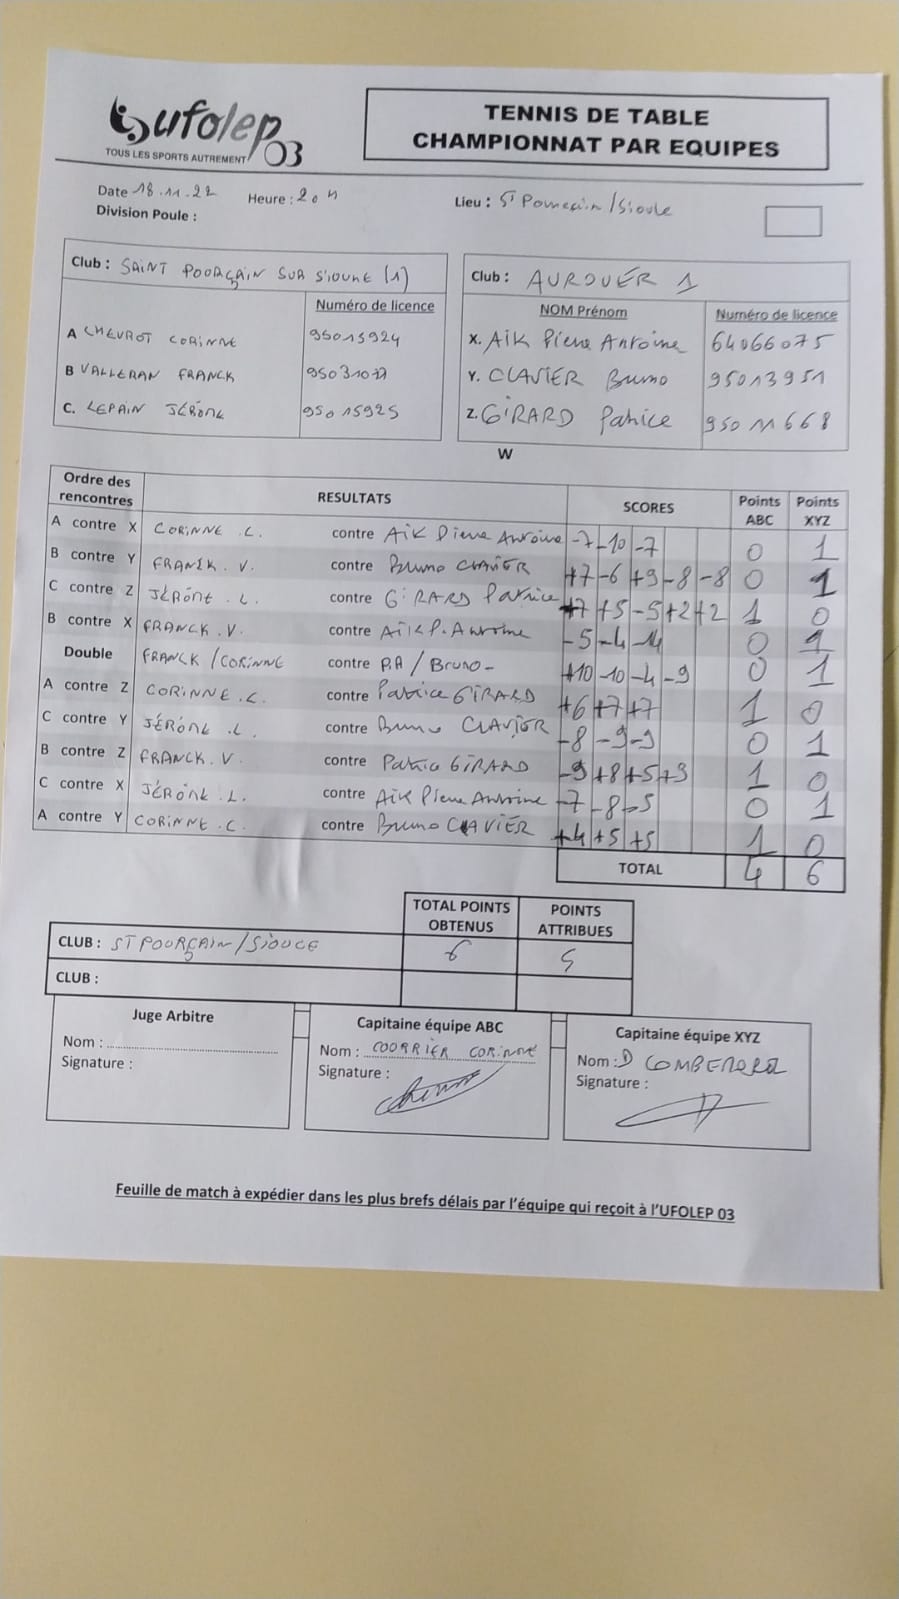 ufolep 03
TOUS LES SPORTS AUTREMENT
TENNIS DE TABLE
CHAMPIONNAT PAR EQUIPES
Date 18.11.22 Heure : 20 H Lieu : St Pourçain/Sioule
Division Poule :
Club : SAINT POURÇAIN SUR SIOULE (1)
Numéro de licence
A CHEVROT CORINNE 95015924
B VALLERAN FRANCK
C. LEPAIN JÉRÔME 95015925
Club : AUROUËR 1
NOM Prénom Numéro de licence
X. AÏK Pierre Antoine 64066075
Y. CLAVIER Bruno 95013951
Z. GIRARD Patrice 95011668
W
Ordre des rencontres RESULTATS SCORES Points ABC Points XYZ
A contre X CORINNE .C. contre Aïk Pierre Antoine -7 -10 -7 0 1
B contre Y FRANCK . V. contre Bruno CLAVIER +7 -6 +9 -8 -8 0 1
C contre Z JÉRÔME . L. contre GIRARD Patrice +7 +5 -5 +2 +2 1 0
B contre X FRANCK . V. contre Aïk P. Antoine -5 -4 -14 0 1
Double FRANCK / CORINNE contre P.A / Bruno - +10 -10 -4 -9 0 1
A contre Z CORINNE . C. contre Patrice GIRARD +6 +7 +7 1 0
C contre Y JÉRÔME . L. contre Bruno CLAVIER -8 -9 -9 0 1
B contre Z FRANCK . V. contre Patrice GIRARD -9 +8 +5 +9 1 0
C contre X JÉRÔME . L. contre Aïk Pierre Antoine -7 -8 -5 0 1
A contre Y CORINNE . C. contre Bruno CLAVIER +4 +5 +5 1 0
TOTAL 4 6
TOTAL POINTS OBTENUS POINTS ATTRIBUES
CLUB : ST POURÇAIN/SIOULE 6 5
CLUB :
Juge Arbitre
Nom :
Signature :
Capitaine équipe ABC
Nom : COURRIER CORINNE
Signature :
Capitaine équipe XYZ
Nom : D
Signature :
Feuille de match à expédier dans les plus brefs délais par l'équipe qui reçoit à l'UFOLEP 03